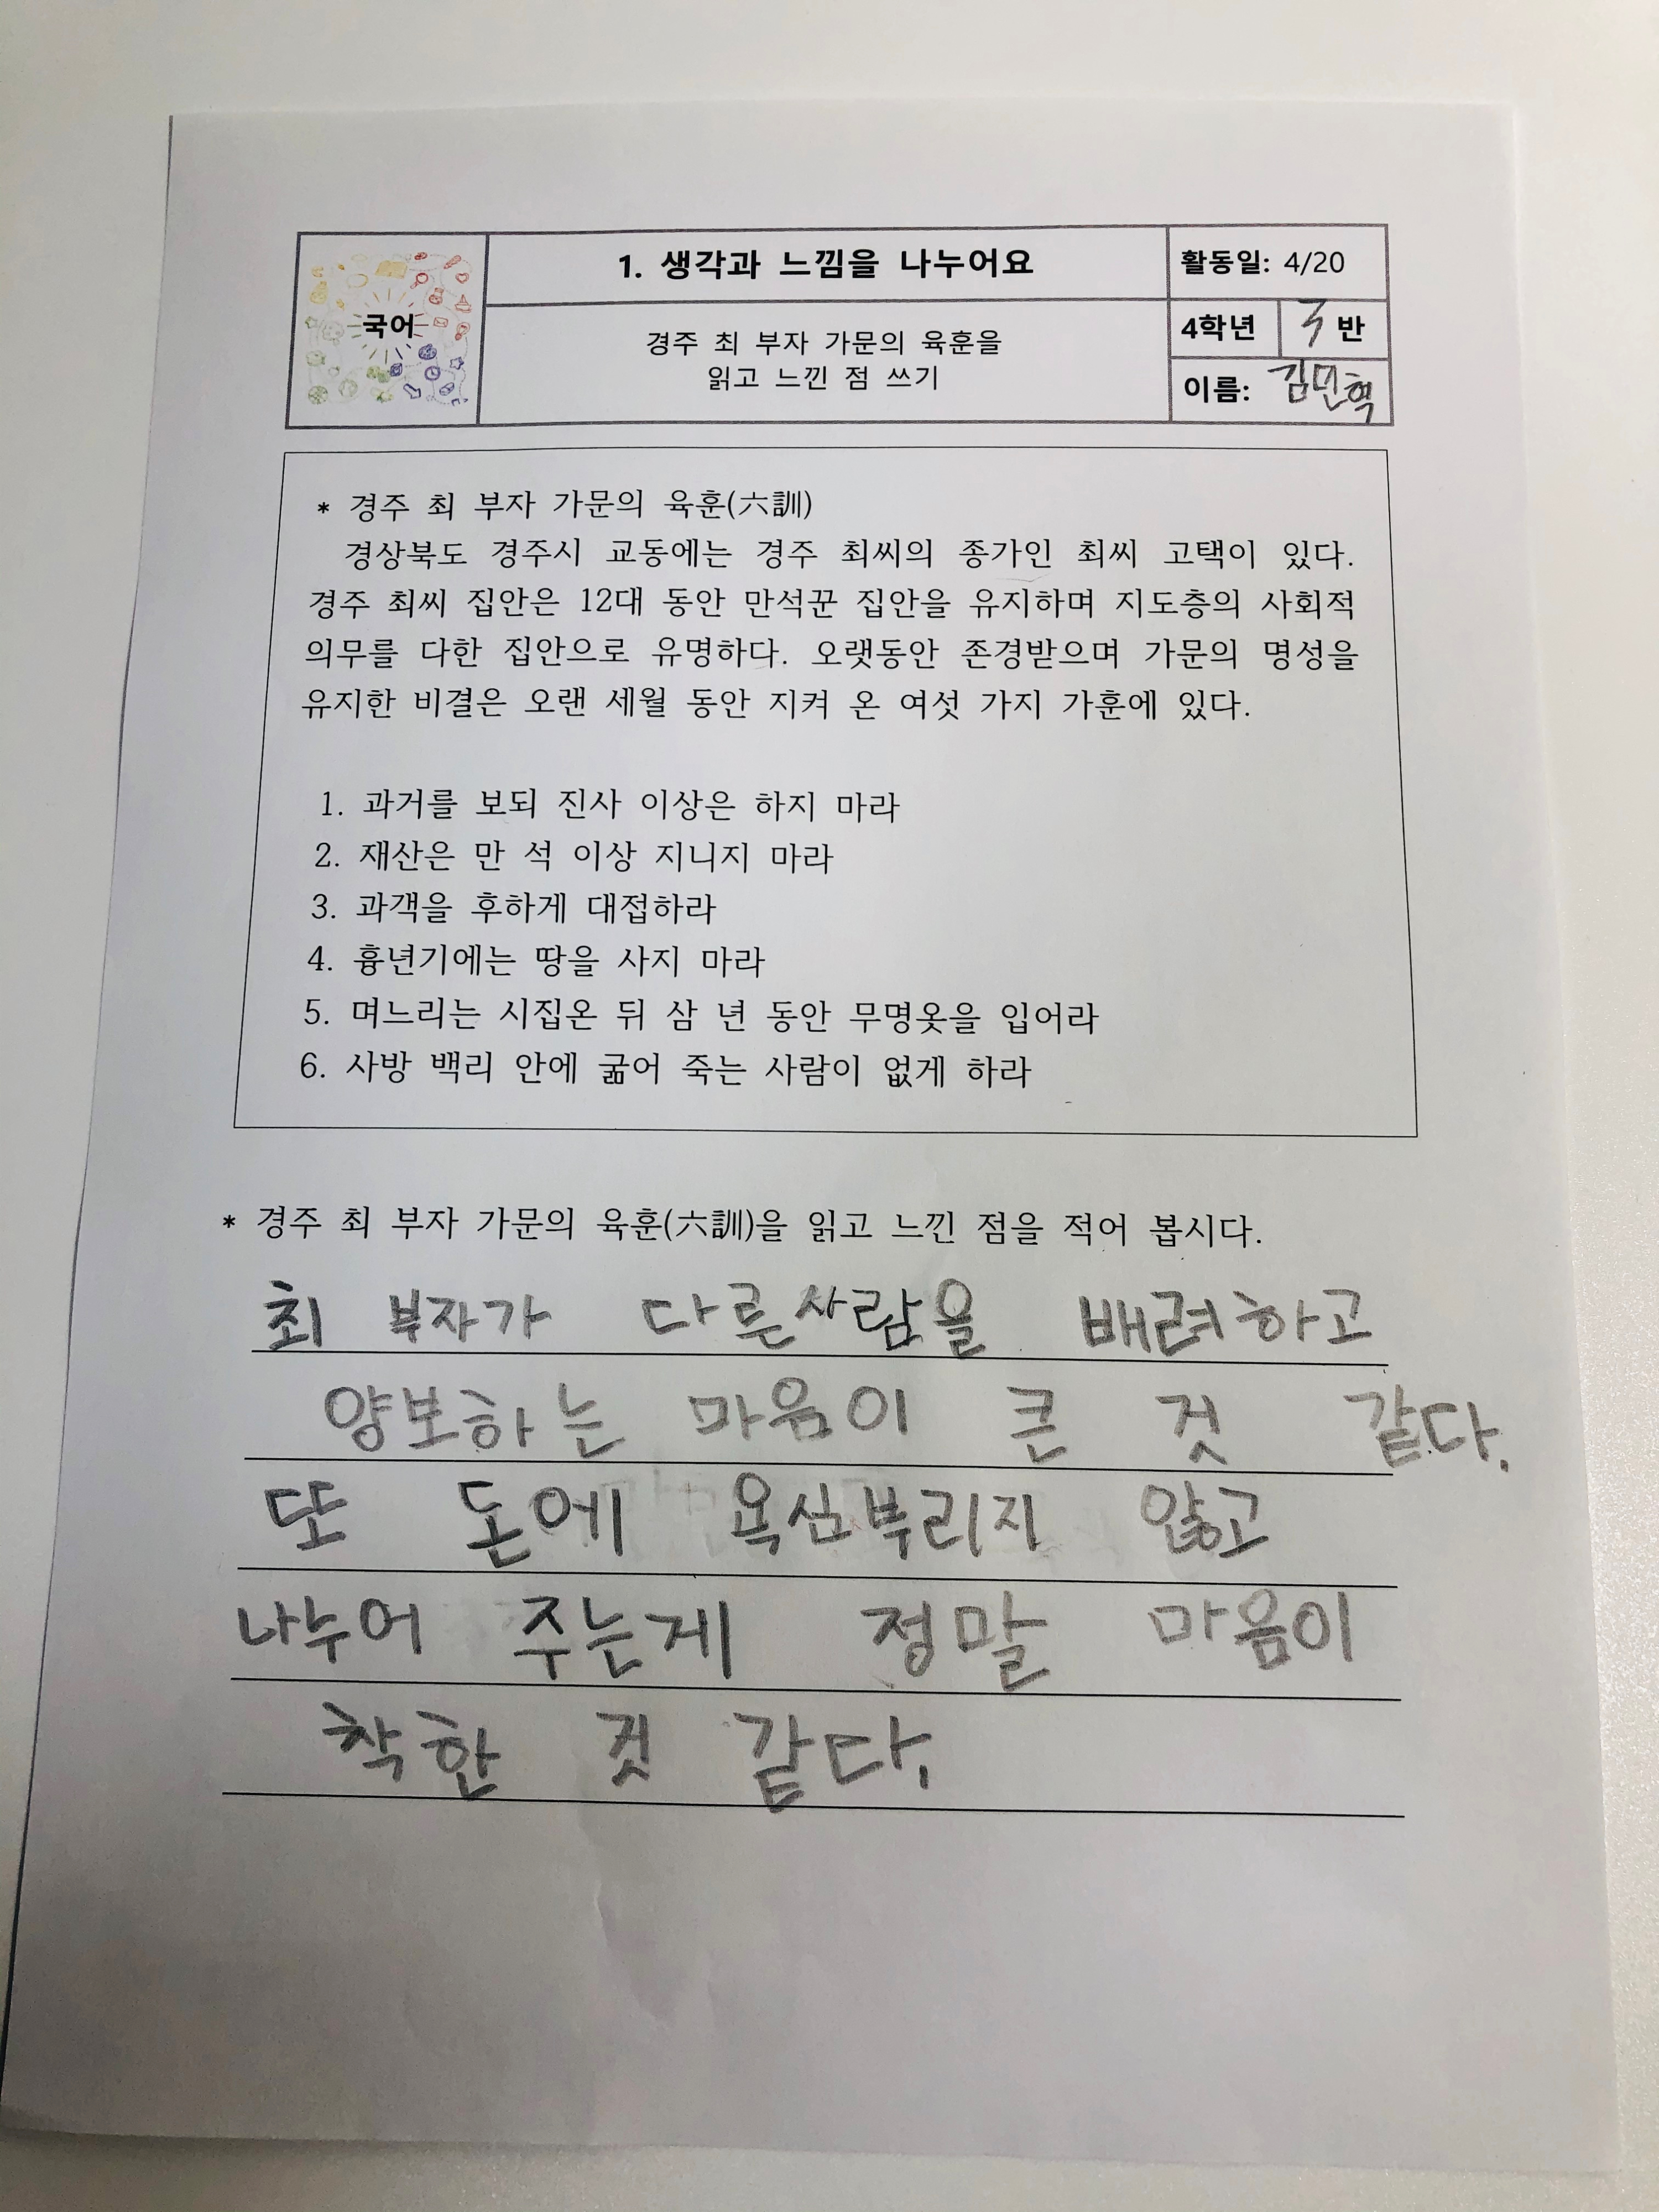 국어
1. 생각과 느낌을 나누어요
경주 최 부자 가문의 육훈을
읽고 느낀 점 쓰기
활동일: 4/20
4학년 3 반
이름: 김민혁
* 경주 최 부자 가문의 육훈(六訓)
경상북도 경주시 교동에는 경주 최씨의 종가인 최씨 고택이 있다.
경주 최씨 집안은 12대 동안 만석꾼 집안을 유지하며 지도층의 사회적
의무를 다한 집안으로 유명하다. 오랫동안 존경받으며 가문의 명성을
유지한 비결은 오랜 세월 동안 지켜 온 여섯 가지 가훈에 있다.
1. 과거를 보되 진사 이상은 하지 마라
2. 재산은 만 석 이상 지니지 마라
3. 과객을 후하게 대접하라
4. 흉년기에는 땅을 사지 마라
5. 며느리는 시집온 뒤 삼 년 동안 무명옷을 입어라
6. 사방 백리 안에 굶어 죽는 사람이 없게 하라
* 경주 최 부자 가문의 육훈(六訓)을 읽고 느낀 점을 적어 봅시다.
최 부자가 다른사람을 배려하고
양보하는 마음이 큰 것 같다.
또 돈에 욕심부리지 않고
나누어 주는게 정말 마음이
착한 것 같다.